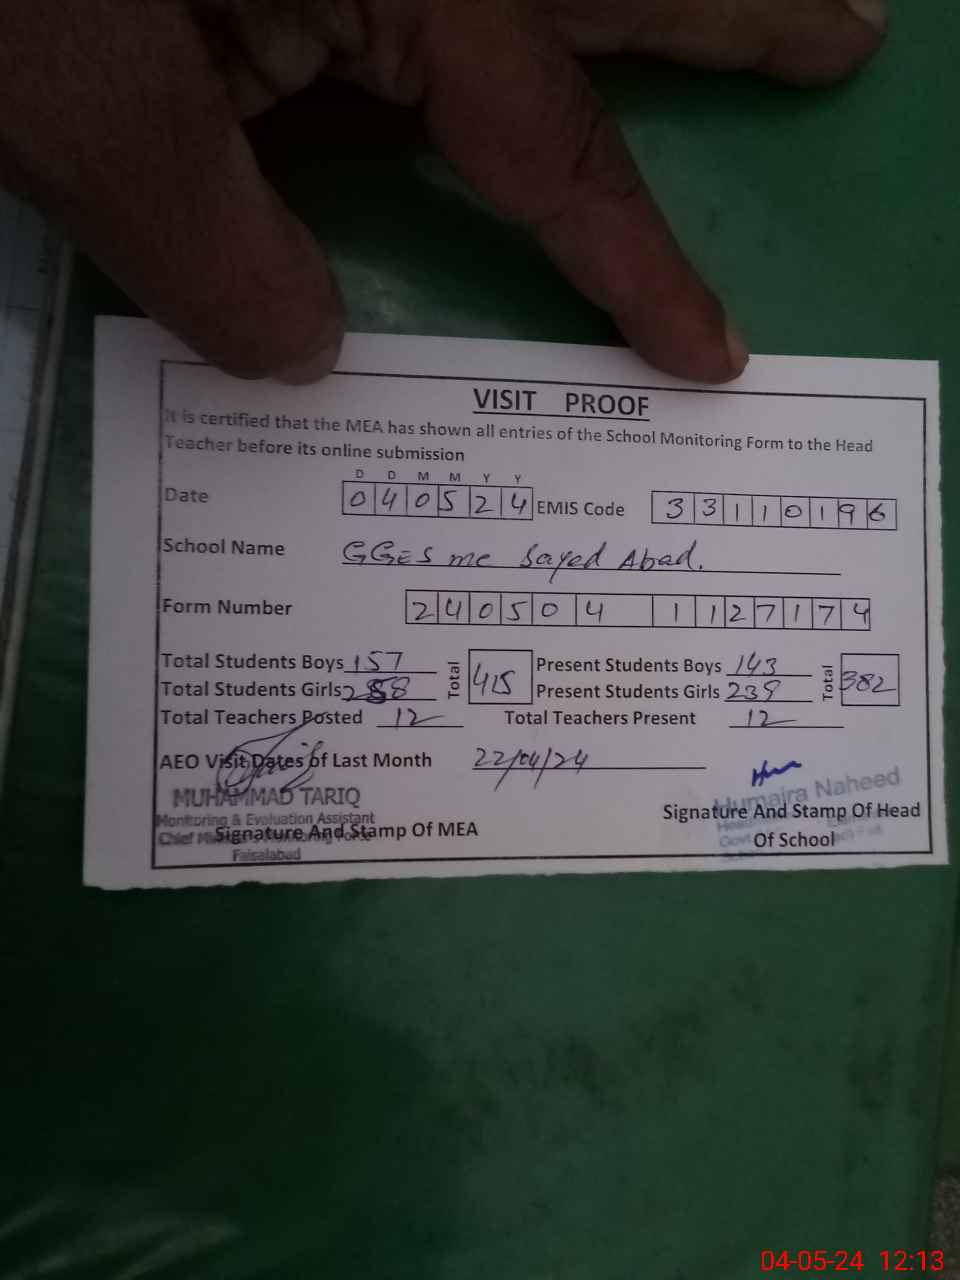 VISIT PROOF
It is certified that the MEA has shown all entries of the School Monitoring Form to the Head
Teacher before its online submission
D D M M Y Y
Date 040524 EMIS Code 33110196
School Name GGES mc Sayed Abad.
Form Number 240504 1127174
Total Students Boys 157 Total 415 Present Students Boys 143 Total 382
Total Students Girls 258 Present Students Girls 239
Total Teachers Posted 12 Total Teachers Present 12
AEO Visit Dates of Last Month 22/04/24
MUHAMMAD TARIQ
Monitoring & Evaluation Assistant
Chief
Faisalabad
Signature And Stamp Of MEA
Humaira Naheed
Signature And Stamp Of Head
Of School
04-05-24 12:13